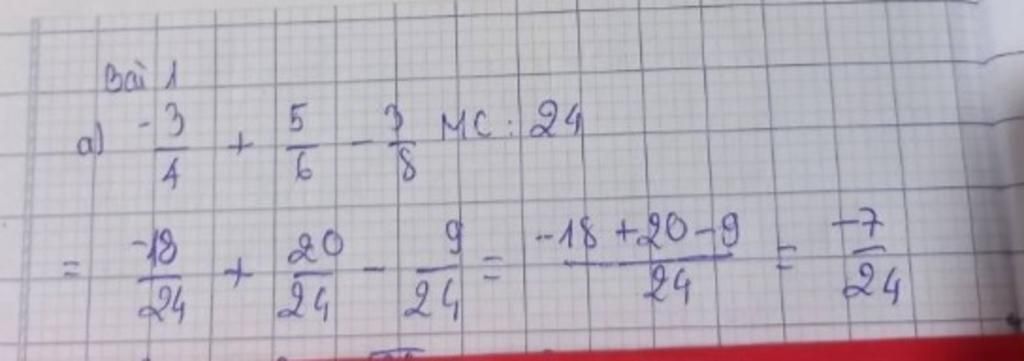 Bài 1
a) -3/4 + 5/6 - 3/8 MC: 24
= -18/24 + 20/24 - 9/24 = -18+20-9/24 = -7/24